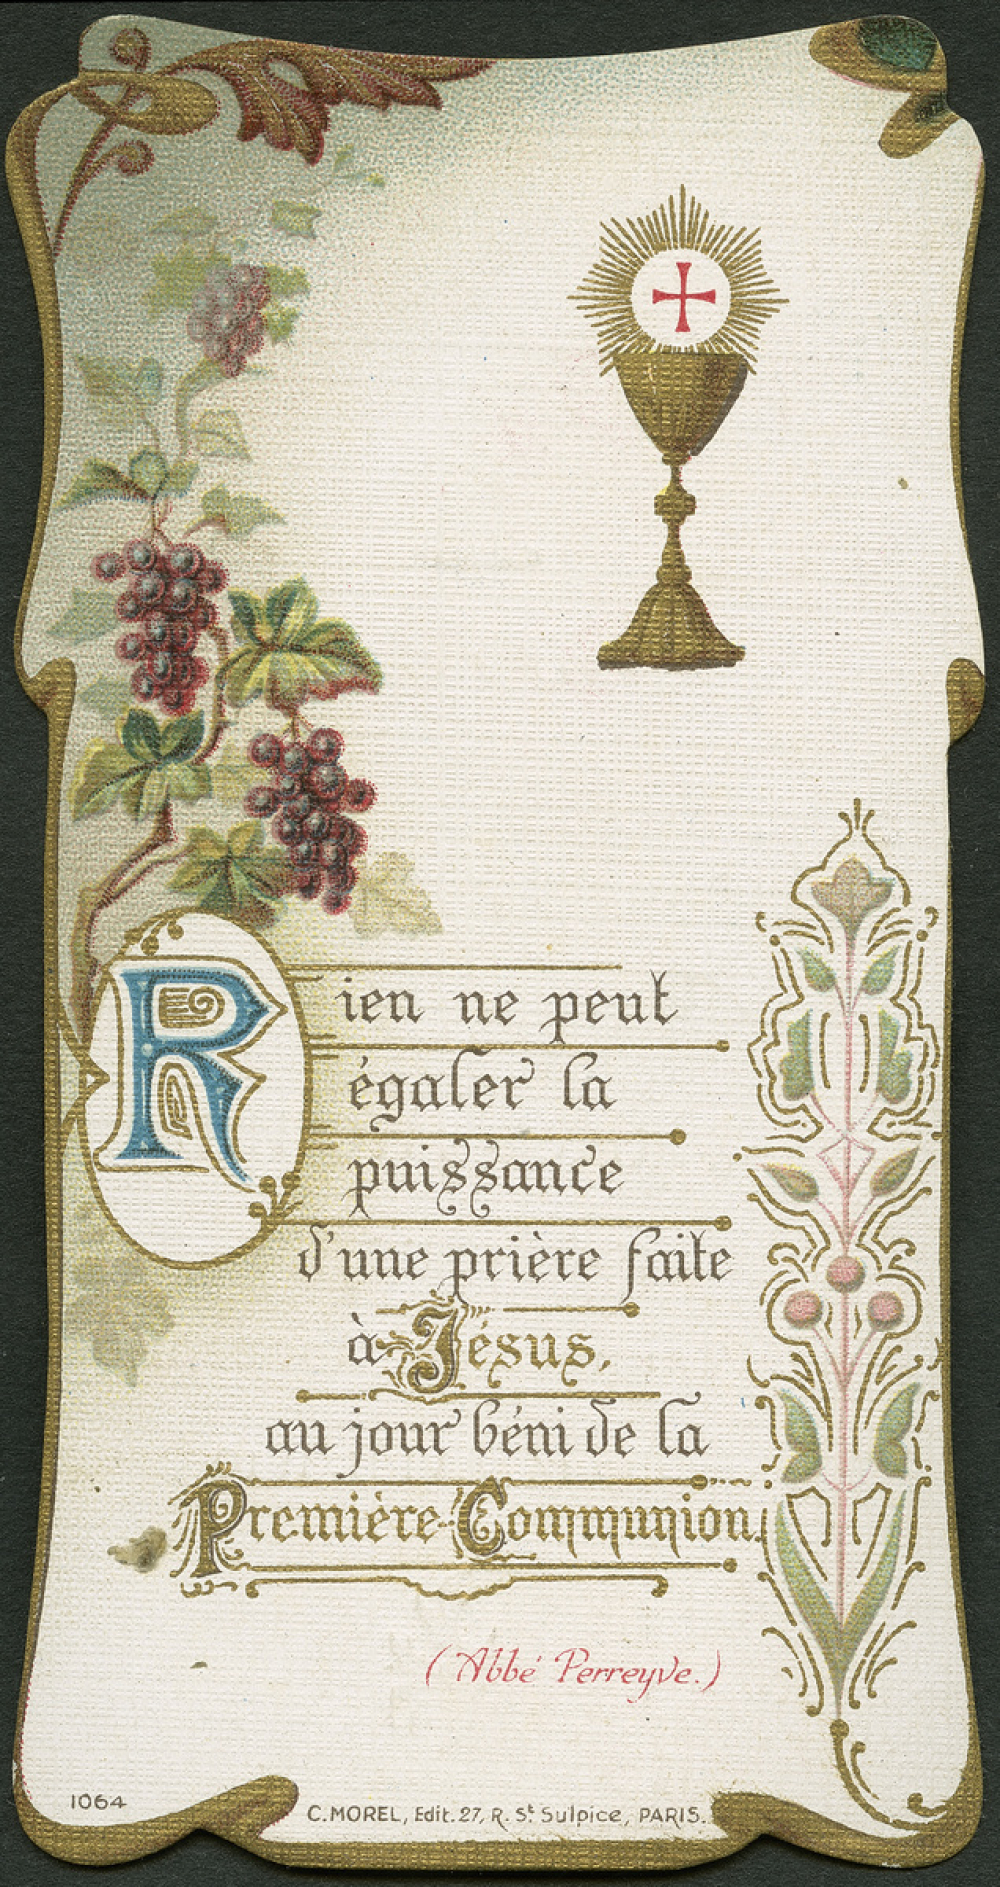 Rien ne peut
égaler la
puissance
d'une prière faite
à Jésus,
au jour béni de la
Première Communion.
(Abbé Perreyve.)
1064
C. MOREL, Edit. 27, R. St Sulpice, PARIS.